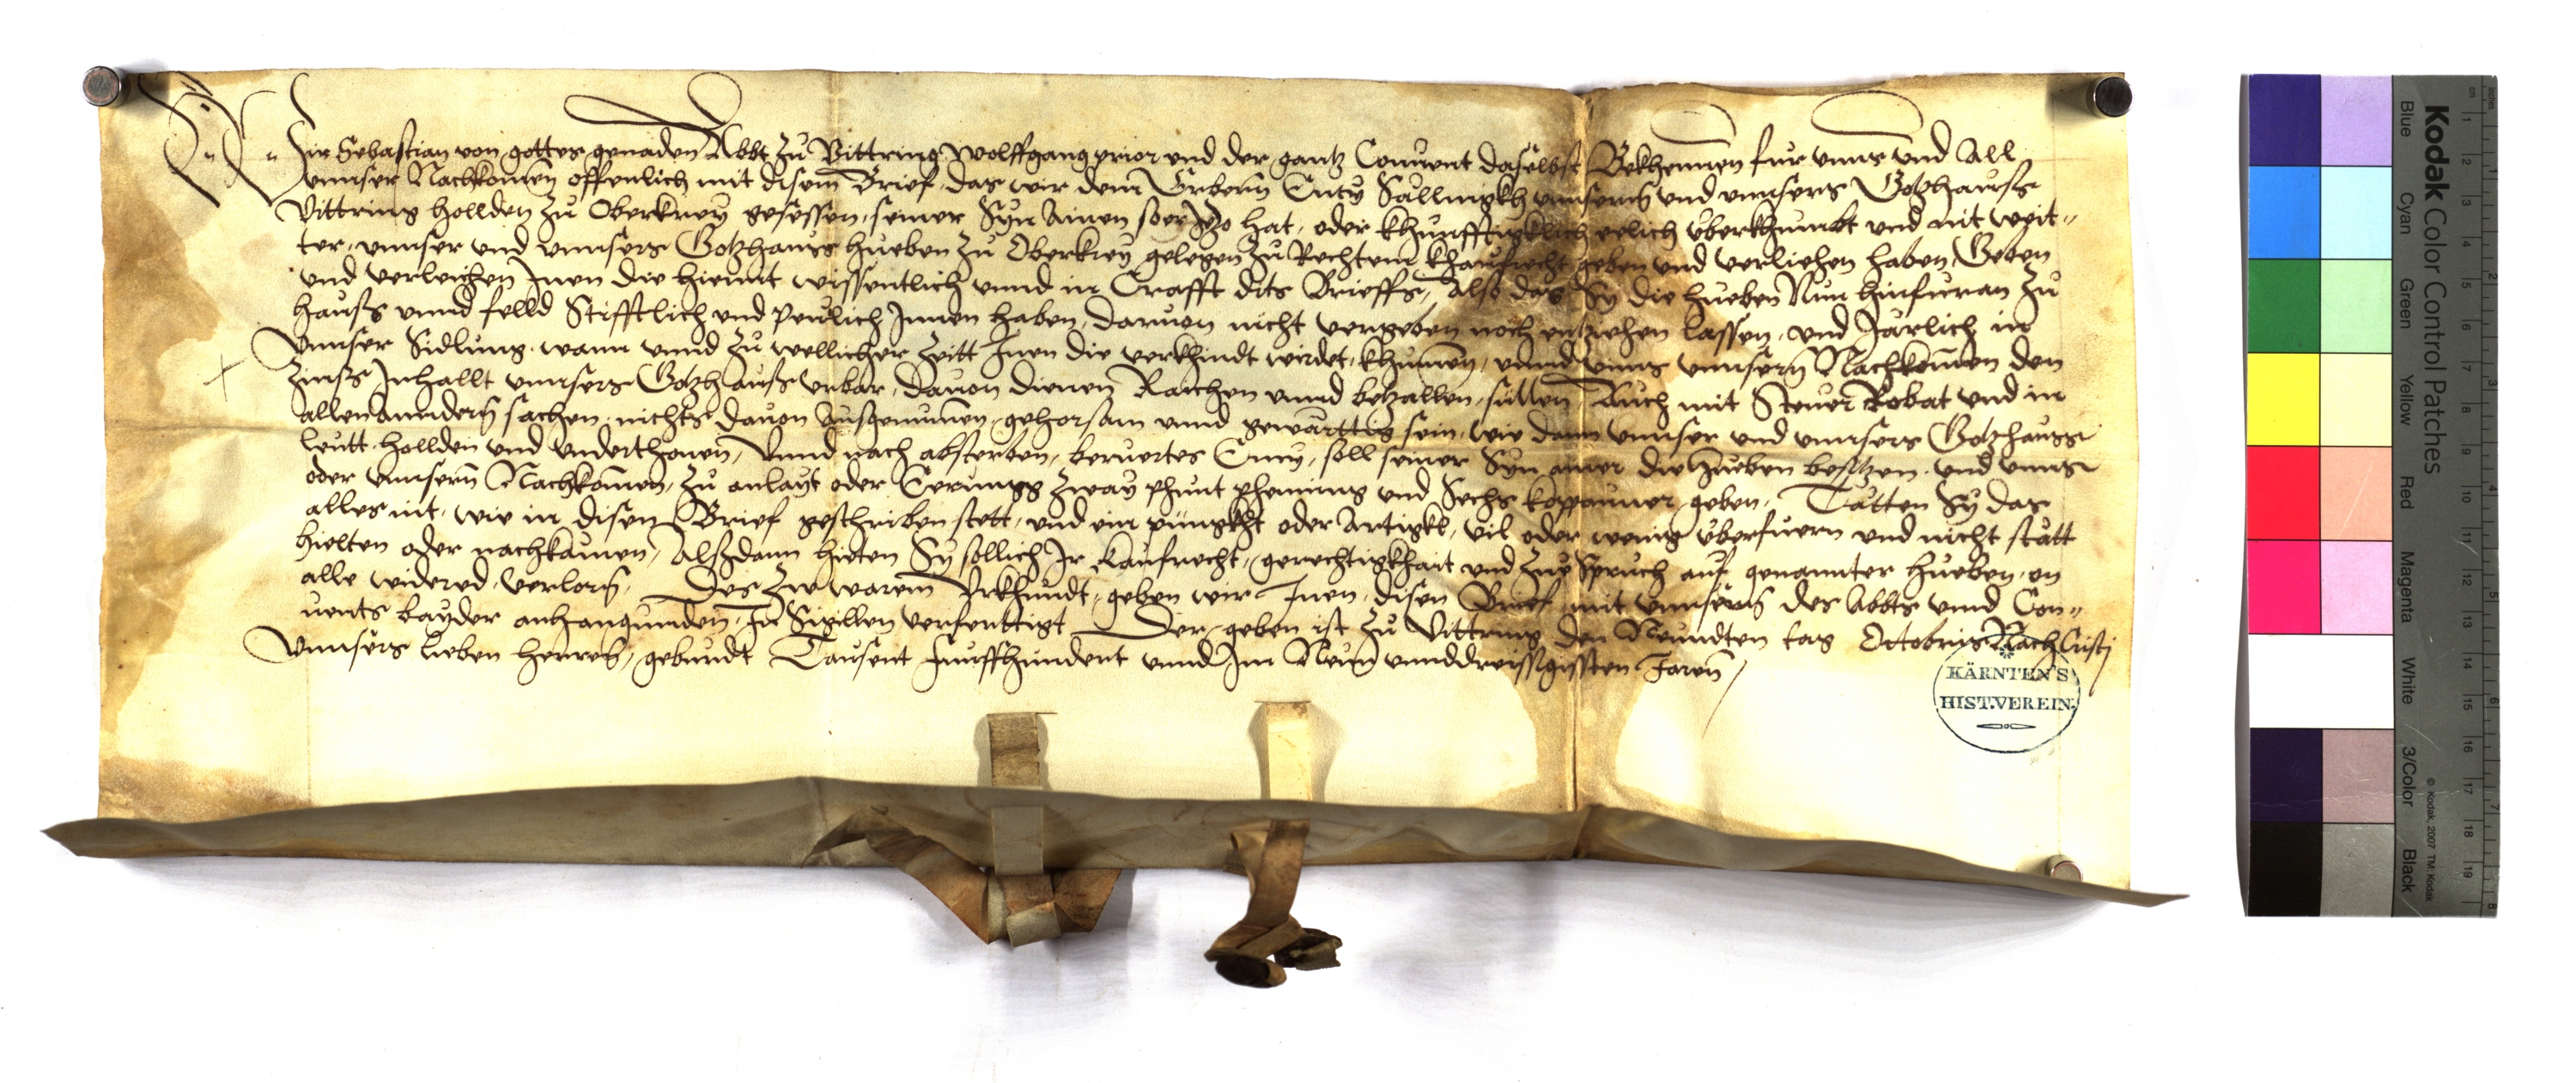 Wir Sebastian von gottes genaden Abbt zu Vittring Wolffgang prior und der gantz Conuent daselbst Bekhennen fur unns und All
unnser Nachkomen offenlich mit disem Brief, das wir dem Erbern Enczy unnserm und unnsers Gotzhauss
Vittring hollden zu Oberkrey gesessen, seiner Syn Ainen so er Yzo hat, oder khunfftigklich eelich uberkhumbt und nit weit„
ter, unnser und unnsers Gotzhaus hueben zu Oberkrey gelegen zu Rechtem khaufrecht geben und verliehen haben, Geben
und verleichen Inen die hiemit wissentlich unnd in Crafft dits Brieffs, Also das Sy die hueben Nun hinfuran zu
hauss unnd felld Stifftlich und peulich Innen haben, daruon nicht vergeben noch entziehen lassen, und Järlich in
Unnser Sidlung, wann unnd zu wellicher Zeitt Inen die verkhindt wirdet, khumen, unnd unns unnsern Nachkomen den
Zinss Inhallt unnsers Gotzhauss urbar, dauon dienen Raichen unnd betzallen, sullen, Auch mit Steuer Robat und in
allen anndern sachen, nichts dauon ausgenumen, gehorsam unnd gewärttig sein, wie dann unnser und unnsers Gotzhauss
leutt hollden und underthonen, Unnd nach absterben, beruertes Enczy, soll seiner Syn ainer die Hueben besitzen, und unns
oder unnsern Nachkomen, zu anlayt oder Eerungg zway phunt phening und Sechs koppauner geben, Tätten Sy das
alles nit, wie in disem Brief geschriben stett, und ein püngkht oder Artigkl, vil oder wenig uberfuern und nicht statt
hielten oder nachkämen, Alssdann hieten Sy sollich Ir kaufrecht, gerechtigkhait und zue Spruch auf genannter hueben, on
alle widered verlorn, Des zw warem Urkhundt, geben wir Inen, disen Brief mit unnsern des Abbts unnd Con„
uents bayder anhangunden, Sigillen verferttigt Der geben ist zu Vittring den Neundten tag Octobris Nach Cristi
Unnsers lieben herren, geburdt Tausent funffhundert unnd Im Neun unnddreissigisten Jaren,
KÄRNTEN'S
HIST. VEREIN.
Kodak Color Control Patches
Blue Cyan Green Yellow Red Magenta White 3/Color Black
© Kodak, 2007 TM: Kodak
cm 1 2 3 4 5 6 7 8 9 10 11 12 13 14 15 16 17 18 19
inches 1 2 3 4 5 6 7 8